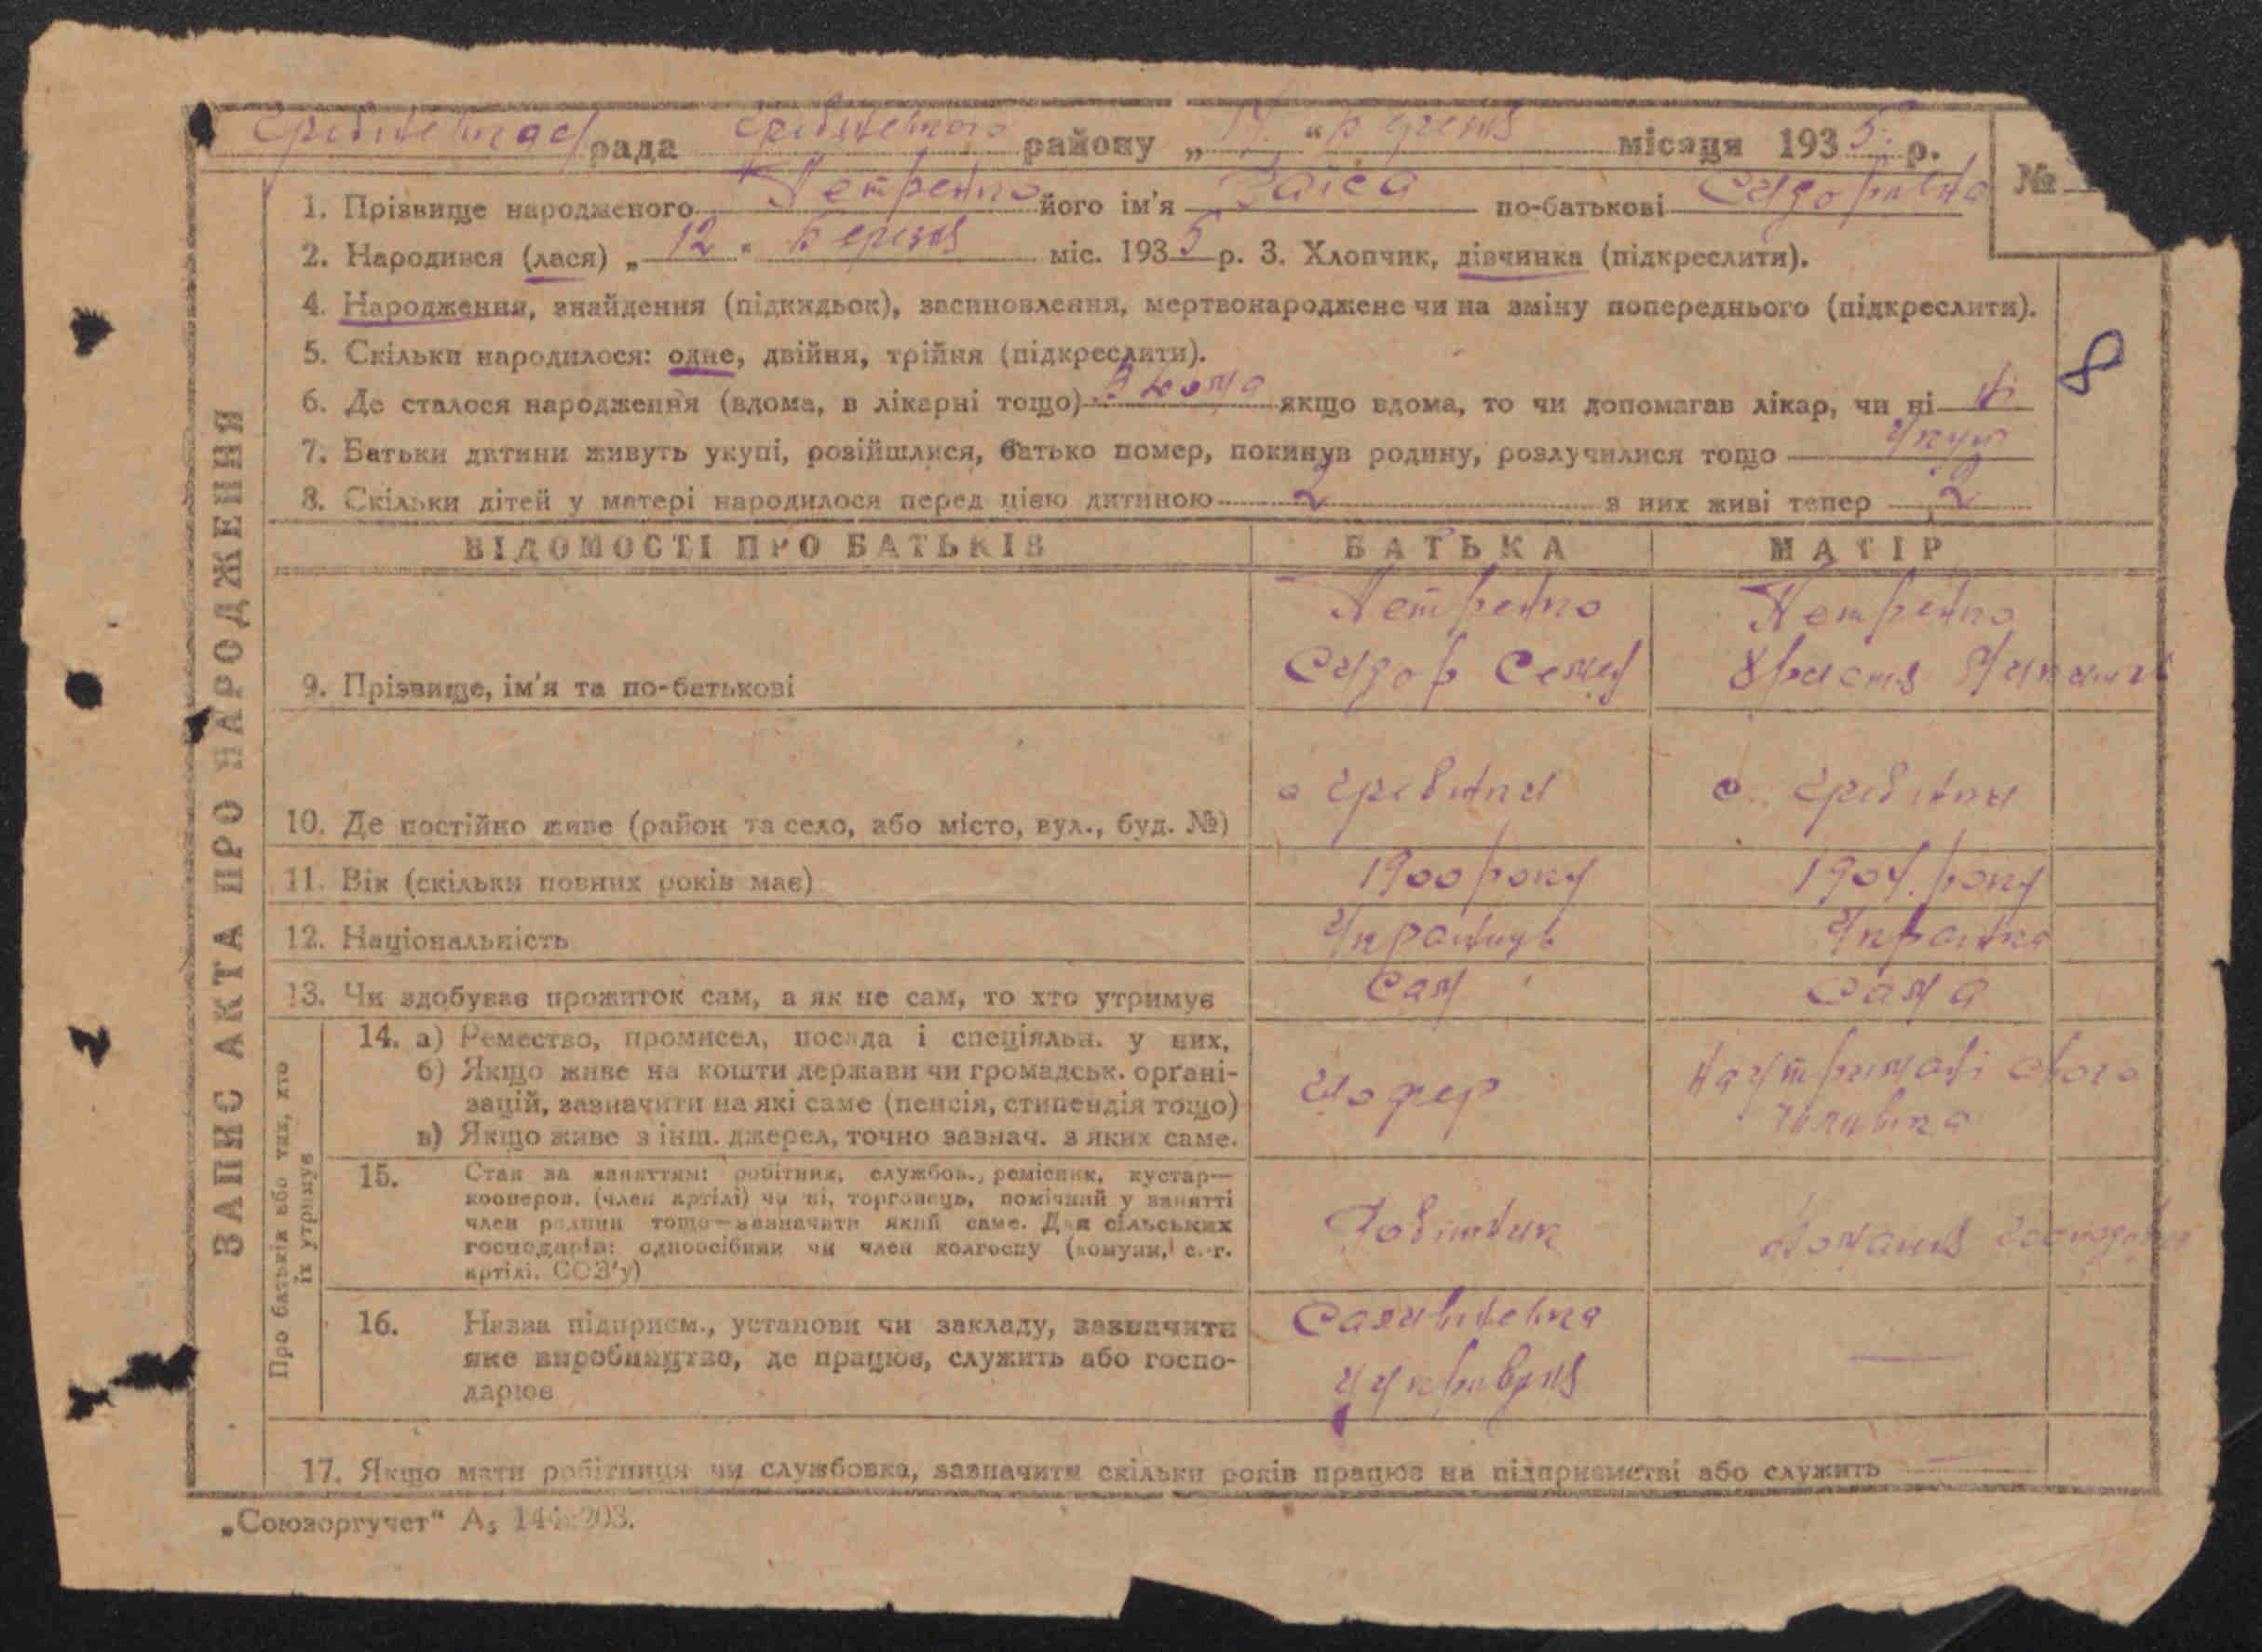 Гребінківська рада Гребінківського району „ 14 “ березня місяця 1935 р.
№
1. Прізвище народженого Петренко його ім'я Раїса по-батькові Сидорівна
2. Народився (лася) „ 12 “ березня міс. 1935 р. 3. Хлопчик, дівчинка (підкреслити).
4. Народження, знайдення (підкидьок), засиновлення, мертвонароджене чи на зміну попереднього (підкреслити).
5. Скільки народилося: одне, двійня, трійня (підкреслити).
8
6. Де сталося народження (вдома, в лікарні тощо) вдома якщо вдома, то чи допомагав лікар, чи ні ні
7. Батьки дитини живуть укупі, розійшлися, батько помер, покинув родину, розлучилися тощо укупі
8. Скільки дітей у матері народилося перед цією дитиною 2 з них живі тепер 2
ЗАПИС АКТА ПРО НАРОДЖЕННЯ
ВІДОМОСТІ ПРО БАТЬКІВ БАТЬКА МАТІР
Петренко Петренко
Сидор Семен Христя
9. Прізвище, ім'я та по-батькові
с Гребінки с. Гребінки
10. Де постійно живе (район та село, або місто, вул., буд. №)
11. Вік (скільки повних років має) 1900 року 1904. року
12. Національність Українець Українка
13. Чи здобуває прожиток сам, а як не сам, то хто утримує Сам Сама
Про батьків або тих, хто
їх утримує
14. а) Ремество, промисел, посада і спеціяльн. у них,
б) Якщо живе на кошти держави чи громадськ. органі-
зацій, зазначити на які саме (пенсія, стипендія тощо)
в) Якщо живе з інш. джерел, точно зазнач. з яких саме.
шофер На утримані свого
чоловіка
15. Стан за заняттям: робітник, службов., ремісник, кустар—
кооперов. (член артілі) чи ні, торговець, помічний у занятті
член родини тощо—зазначити який саме. Для сільських
господарів: одноосібник чи член колгоспу (комуни, с.-г.
артілі, СОЗ'у)
Робітник Домашня господарка
16. Назва підприєм., установи чи закладу, зазначити
яке виробництво, де працює, служить або госпо-
дарює
17. Якщо мати робітниця чи службовка, зазначити скільки років працює на підприємстві або служить
„Союзоргучет“ А₅ 144 203.